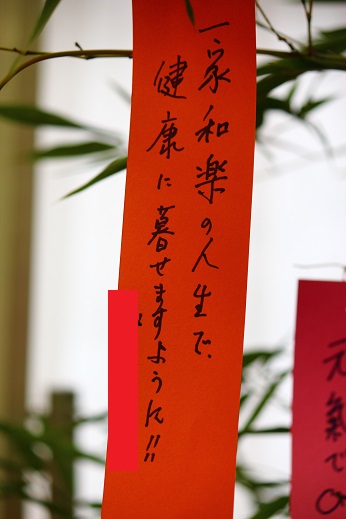 一家和楽の人生で、
健康に暮せますように!!
元氣で